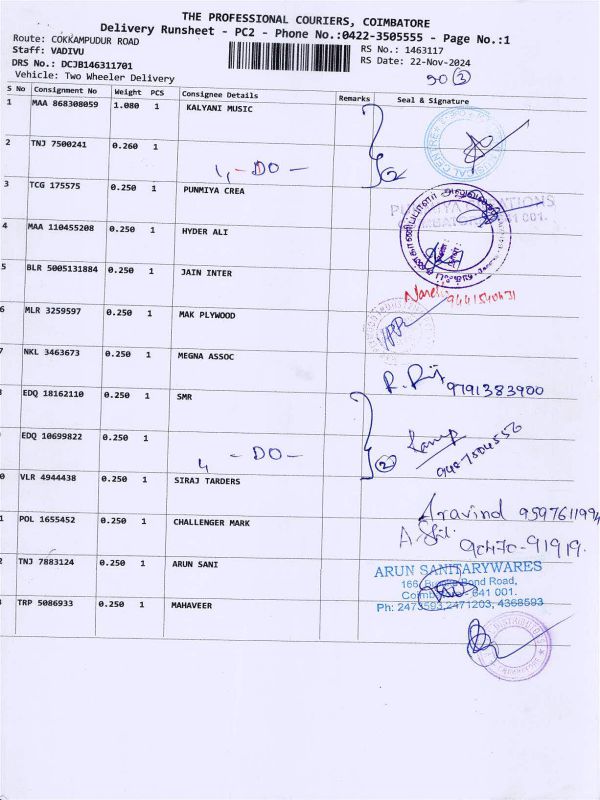 THE PROFESSIONAL COURIERS, COIMBATORE
Delivery Runsheet - PC2 - Phone No.:0422-3505555 - Page No.:1
Route: COKKAMPUDUR ROAD RS No.: 1463117
Staff: VADIVU RS Date: 22-Nov-2024
DRS No.: DCJB146311701
Vehicle: Two Wheeler Delivery
S No Consignment No Weight PCS Consignee Details Remarks Seal & Signature
1 MAA 868308059 1.080 1 KALYANI MUSIC
2 TNJ 7500241 0.260 1
- DO -
3 TCG 175575 0.250 1 PUNMIYA CREA
4 MAA 110455208 0.250 1 HYDER ALI
5 BLR 5005131884 0.250 1 JAIN INTER
6 MLR 3259597 0.250 1 MAK PLYWOOD
7 NKL 3463673 0.250 1 MEGNA ASSOC
9791383900
EDQ 18162110 0.250 1 SMR
EDQ 10699822 0.250 1
- DO -
2
0 VLR 4944438 0.250 1 SIRAJ TARDERS
Aravind
1 POL 1655452 0.250 1 CHALLENGER MARK
90470-91919.
2 TNJ 7883124 0.250 1 ARUN SANI
ARUN SANITARYWARES
Bond Road,
641 001.
Ph: 2473593,2471203, 4368593
TRP 5086933 0.250 1 MAHAVEER